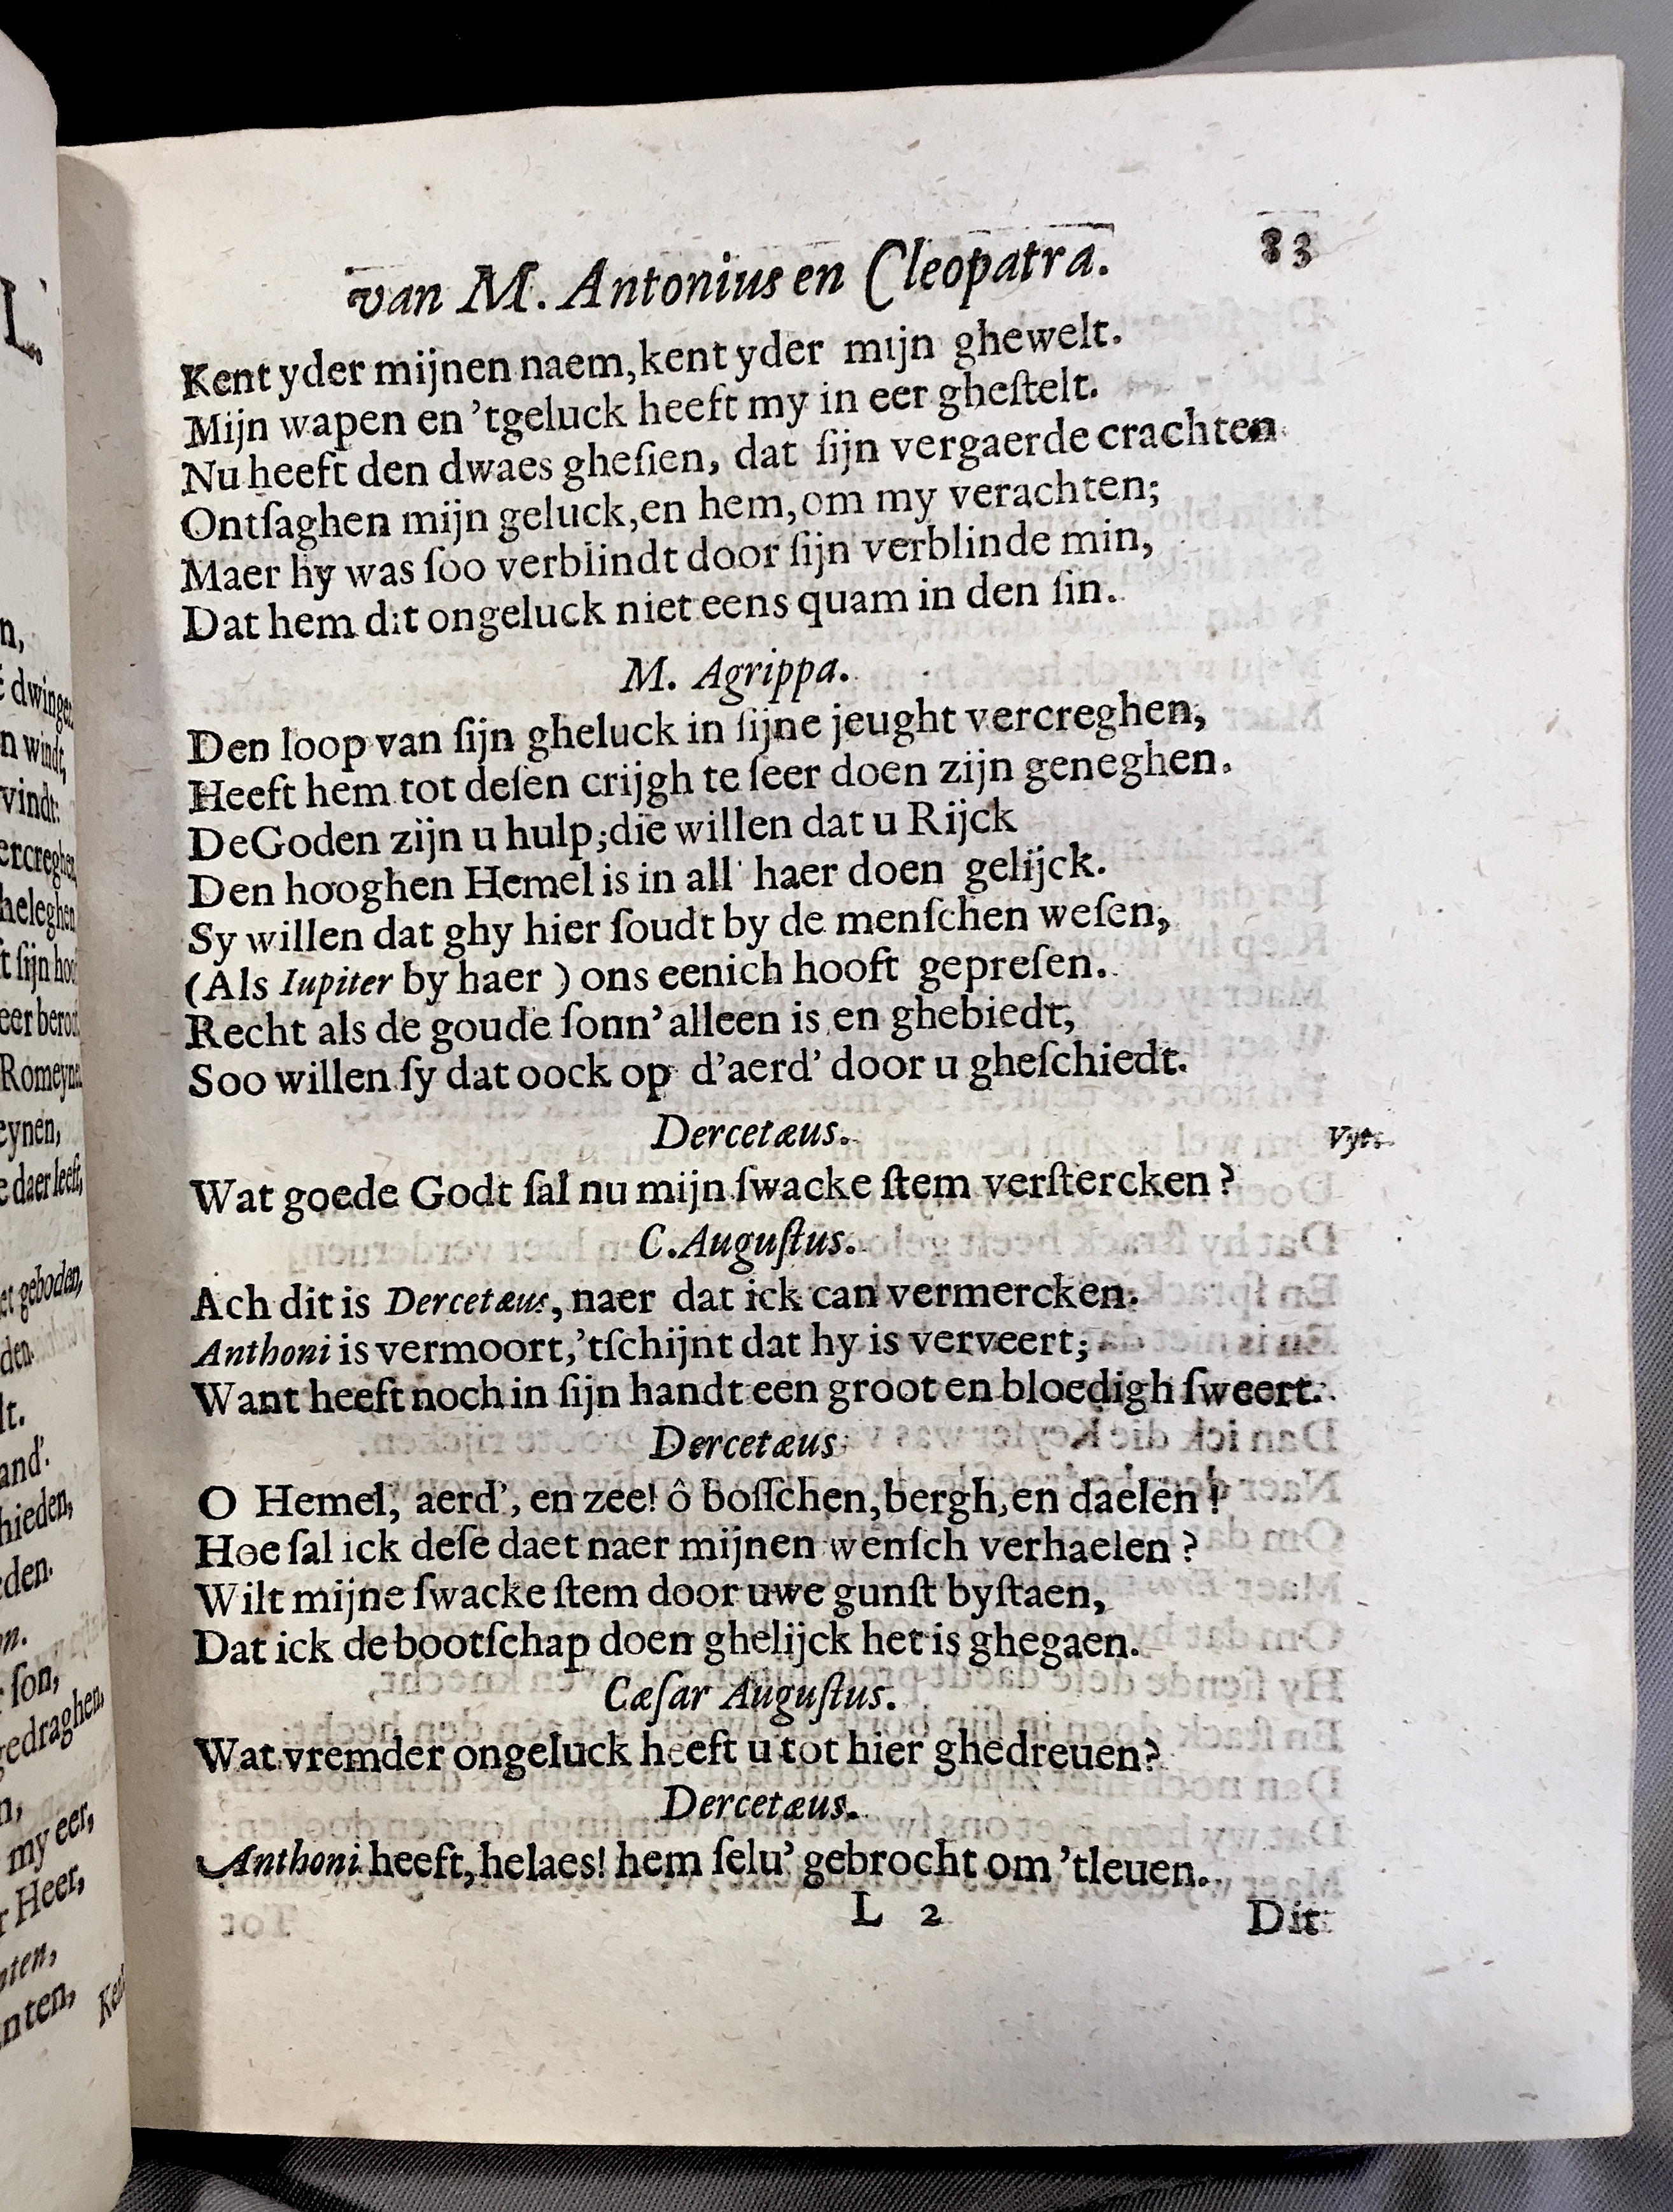 van M. Antonius en Cleopatra. 83
Kent yder mijnen naem, kent yder mijn ghewelt.
Mijn wapen en 'tgeluck heeft my in eer gheſtelt.
Nu heeft den dwaes gheſien, dat ſijn vergaerde crachten
Ontſaghen mijn geluck, en hem, om my verachten;
Maer hy was ſoo verblindt door ſijn verblinde min,
Dat hem dit ongeluck niet eens quam in den ſin.
M. Agrippa.
Den loop van ſijn gheluck in ſijne jeught vercreghen,
Heeft hem tot deſen crijgh te ſeer doen zijn geneghen.
De Goden zijn u hulp; die willen dat u Rijck
Den hooghen Hemel is in all' haer doen gelijck.
Sy willen dat ghy hier ſoudt by de menſchen weſen,
(Als Iupiter by haer) ons eenich hooft gepreſen.
Recht als de goude ſonn' alleen is en ghebiedt,
Soo willen ſy dat oock op d'aerd' door u gheſchiedt.
Dercetæus. Vyt.
Wat goede Godt ſal nu mijn ſwacke ſtem verſtercken?
C. Auguſtus.
Ach dit is Dercetæus, naer dat ick can vermercken.
Anthoni is vermoort, 'tſchijnt dat hy is verveert;
Want heeft noch in ſijn handt een groot en bloedigh ſweert.
Dercetæus
O Hemel, aerd', en zee! ô boſſchen, bergh, en daelen!
Hoe ſal ick deſe daet naer mijnen wenſch verhaelen?
Wilt mijne ſwacke ſtem door uwe gunſt byſtaen,
Dat ick de bootſchap doen ghelijck het is ghegaen.
Cæſar Auguſtus.
Wat vremder ongeluck heeft u tot hier ghedreuen?
Dercetæus.
Anthoni heeft, helaes! hem ſelu' gebrocht om 'tleuen.
L 2 Dit